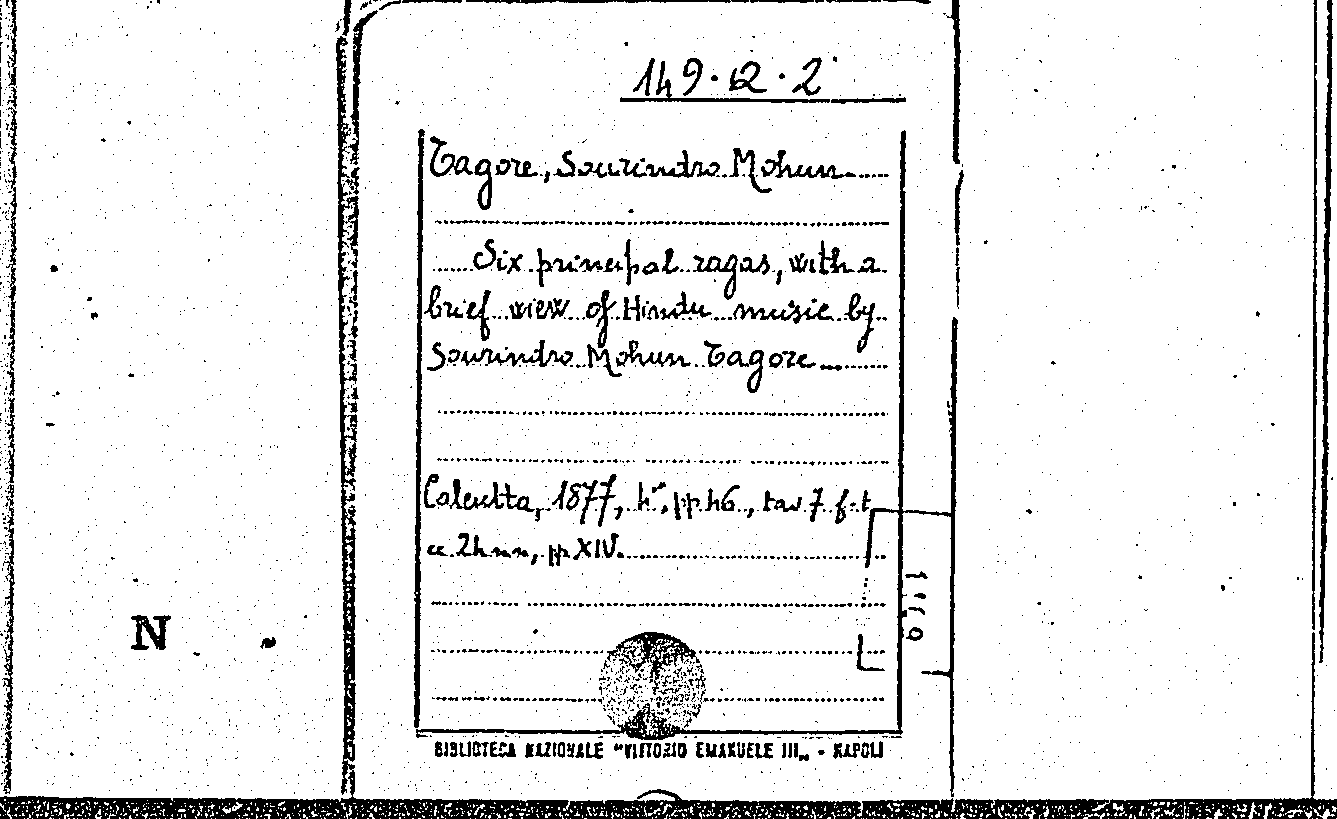 149.12.2
Tagore, Sourindro Mohun
Six principal ragas, with a
brief view of Hindu music by
Sourindro Mohun Tagore...
Calcutta, 1877, 4°, pp. 46, tav 7 f.t.
cc. 24 nn, pp. XIV.
N
BIBLIOTECA NAZIONALE "VITTORIO EMANUELE III„ - NAPOLI